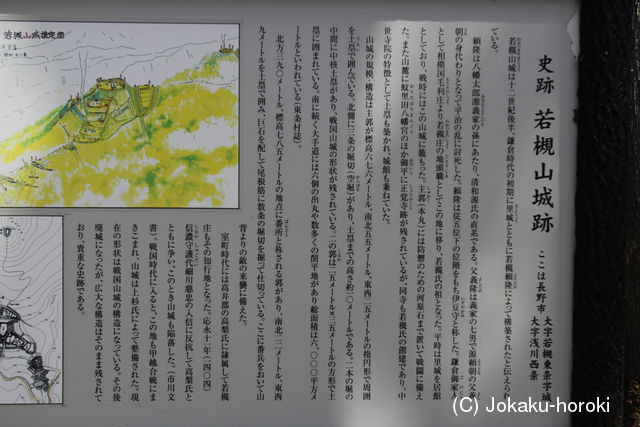 史跡 若槻山城跡
ここは長野市 大字若槻東条字城
大字浅川西条
若槻山城は十二世紀後半、鎌倉時代の初期に里城とともに若槻頼隆によって構築されたと伝えられ
ている。
頼隆は八幡太郎源義家の孫にあたり、清和源氏の直系である。父義隆は義家の七男で源頼朝の父義
朝の身代わりとなって平治の乱に討死した。頼隆は従五位下の位階をもち伊豆守と称した。鎌倉御家人
として相模国毛利庄より若槻庄の地頭職としてこの地に移り、若槻氏の祖となった。平時は里城を居館
としており、戦時にはこの山城に籠もった。主郭（本丸）には防禦のための河原石まで置いて戦闘に備え
た。また山麓に蚊里田八幡宮のほか御平に正覚寺跡が残されているが、同寺も若槻氏の創建であり、中
世寺院の特徴として土塁も築かれ、城館も兼ねていた。
山城の規模、構造は主郭が標高六七六メートル、南北五五メートル、東西二五メートルの楕円形で周囲
を土塁で囲んでいる。北側に三条の堀切（空堀）があり、土塁までの高さ約一〇メートルである。二本の堀の
中間に中核土塁があり、戦国山城の形状が残されている。二の郭は二五メートル×三五メートルの方形で土
塁に囲まれている。南に続く大手道には六個の出丸や数多くの削平地があり総面積は六、〇〇〇平方メ
ートルといわれている（東条村誌）
北方三九〇メートル、標高七八五メートルの地点に番所と称される郭があり、南北二二メートル、東西
九メートルを土塁で囲み、巨石を配して尾根筋に数条の堀切を掘って仕切っている。ここに番兵をおいて山
背よりの敵の来襲に備えた。
室町時代には高井郡の高梨氏に隷属して若槻
庄もその知行地となった。応永十一年（一四〇四）
信濃守護代細川慈忠の入信に反抗して高梨氏と
ともに争い、このとき山城も陥落した。（市川文
書）。戦国時代に入ると、この地も甲越合戦にま
きこまれ、山城は上杉氏によって整備された。現
在の形状は戦国山城の構造になっている。その後
廃城になったが、広大な構造はそのまま残されて
おり、貴重な史跡である。
若槻山城推定図
(C) Jokaku-horoki